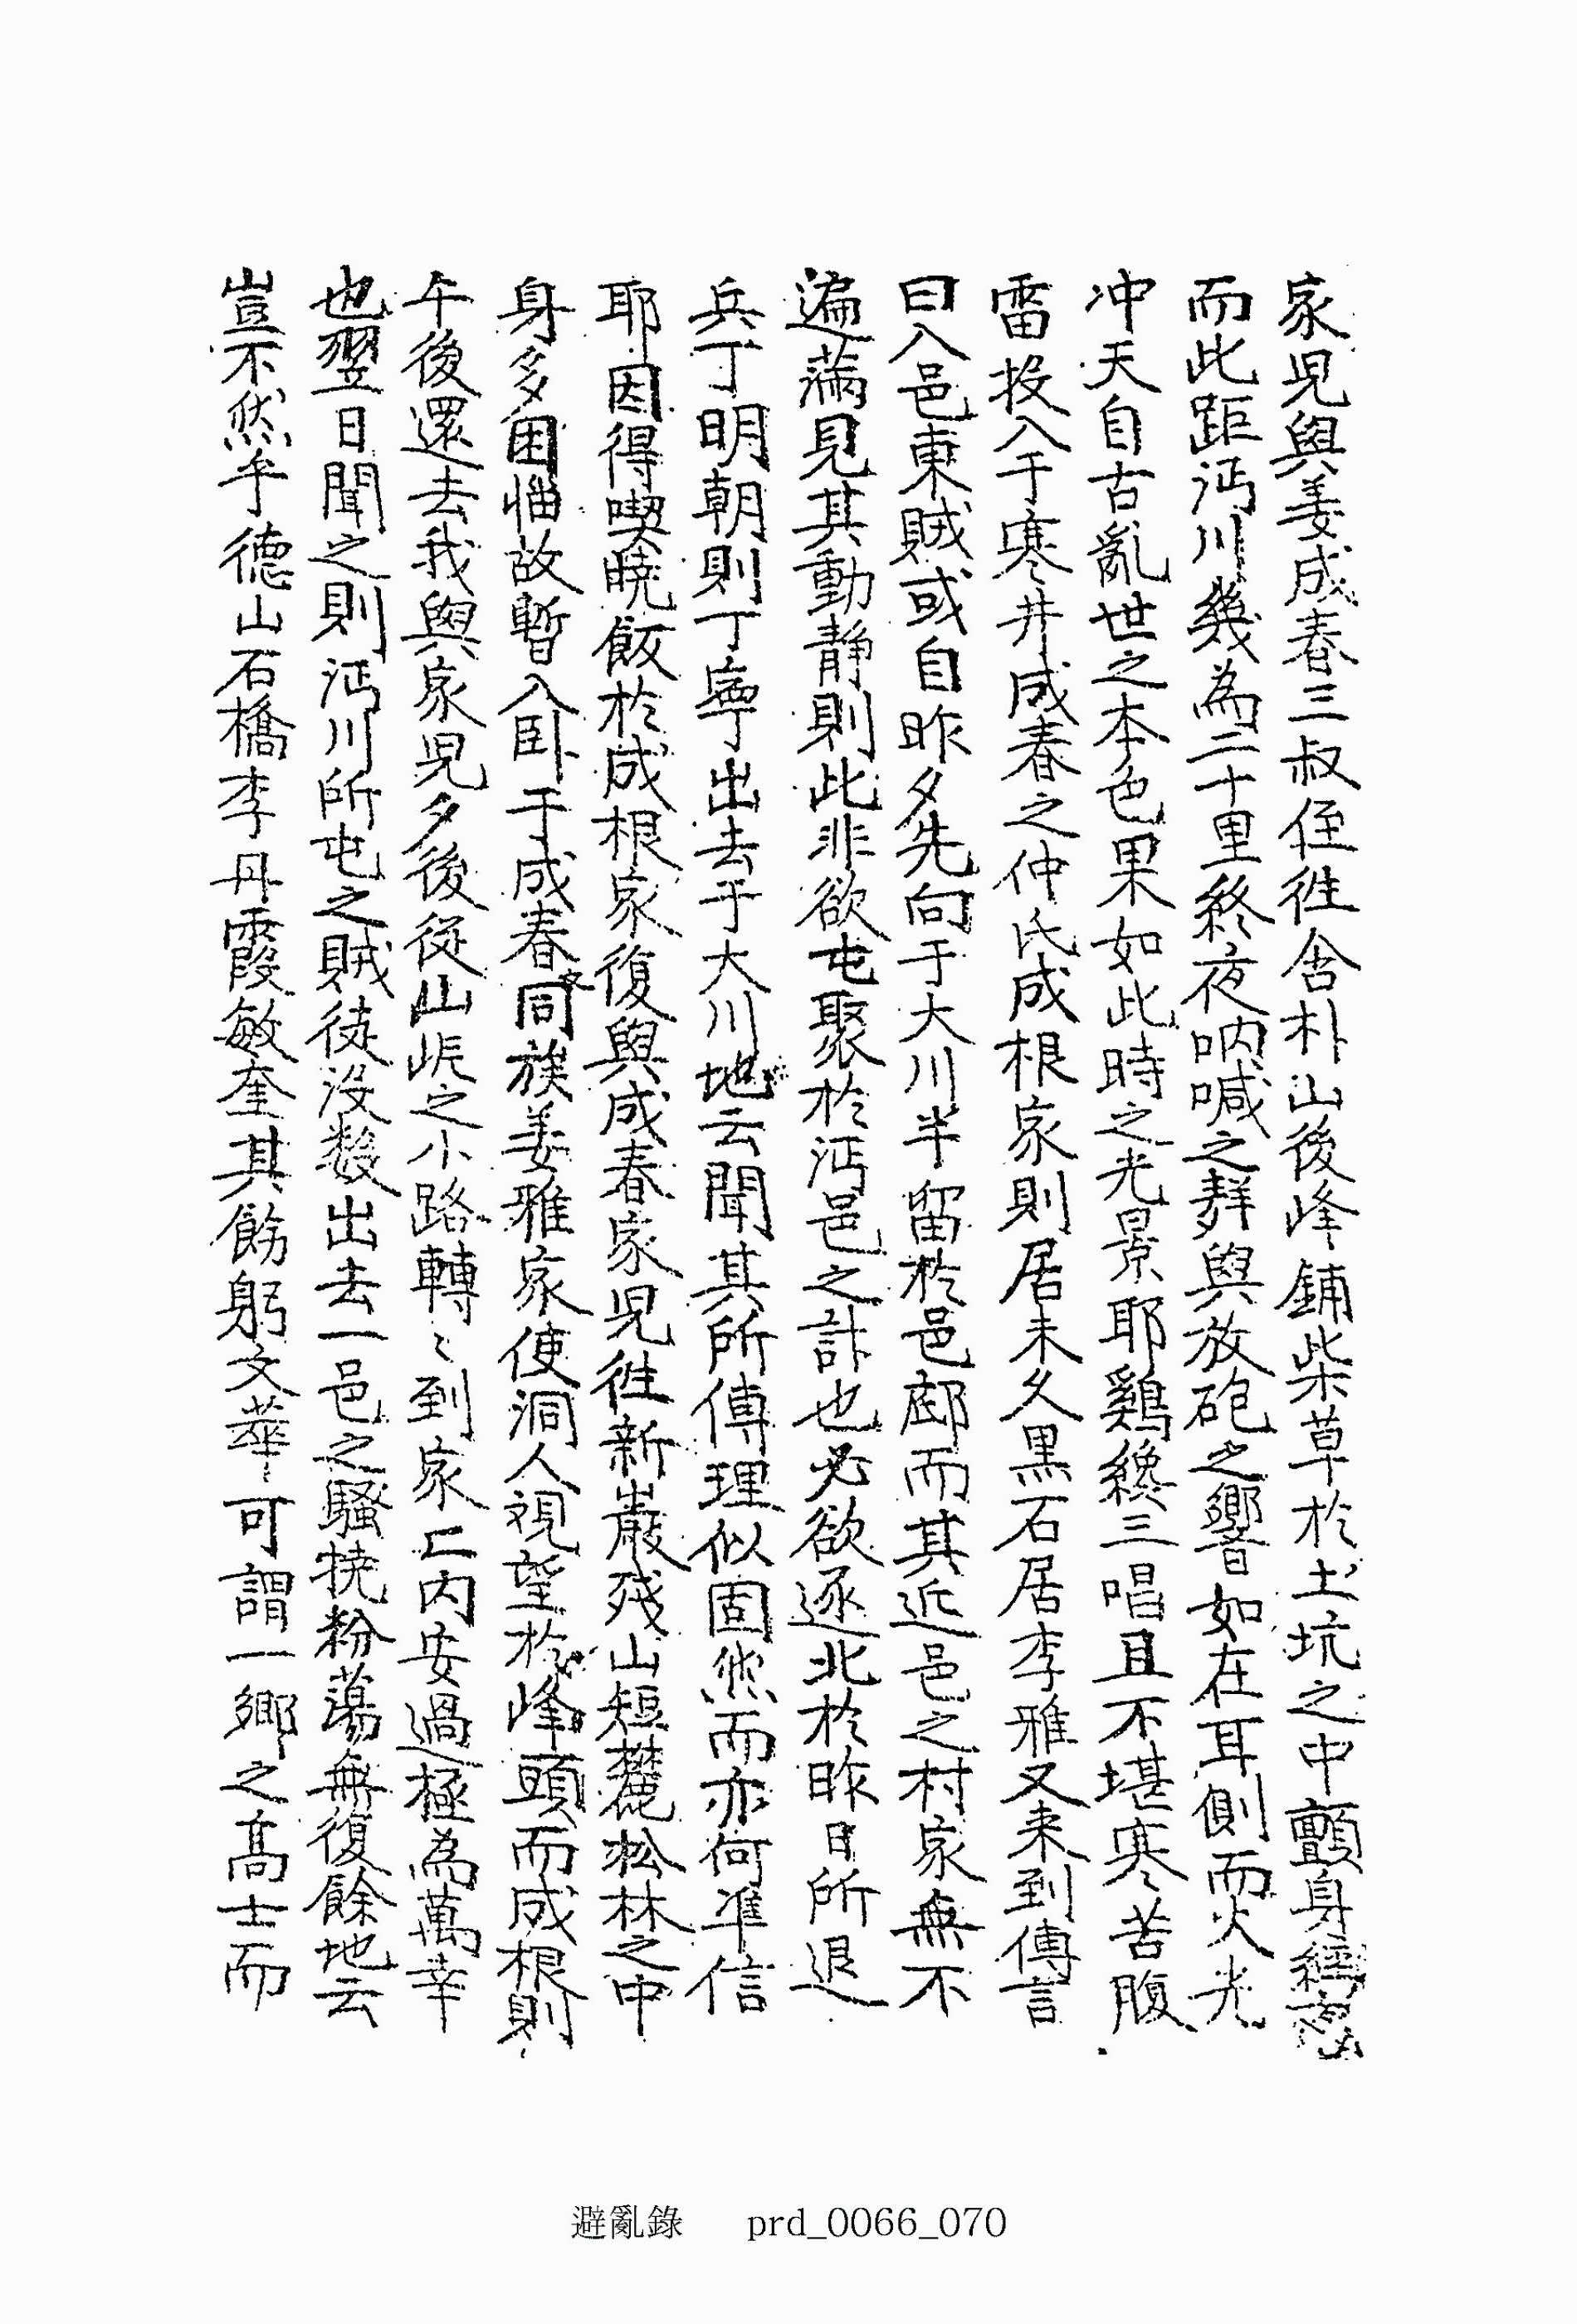 家児與姜成春三叔侄徃舍朴山後峰鋪柴草於土坑之中顫身經夜
而此距沔川幾為二十里終夜吶喊之群與放砲之響如在耳側而火光
冲天自古亂世之本色果如此時之光景耶鷄纔三唱且不堪寒苦腹
雷投入于寒井成春之仲氏成根家則居未久黒石居李雅又来到傳言
曰入邑東賊或自昨夕先向于大川半留於邑邸而其近邑之村家無不
遍満見其動静則此非欲屯聚於沔邑之計也必欲逐北於昨日所退
兵丁明朝則丁寧出去于大川地云聞其所傳理似固然而亦何準信
耶因得喫暁飯於成根家復與成春家児徃新巖殘山短麓松林之中
身多困惱故暫入卧于成春同族姜雅家使洞人視望於峰頭而成根則
午後還去我與家児夕後從山峴之小路轉〻到家亡内安過極為萬幸
也翌日聞之則沔川所屯之賊徒没數出去一邑之騷撓粉蕩無復餘地云
豈不然乎德山石橋李丹霞敏奎其飭躬文華可謂一鄉之髙士而
避亂錄 prd_0066_070